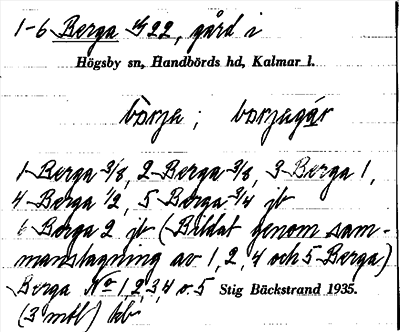 1-6 Berga 22, gård i
Högsby sn, Handbörds hd, Kalmar l.
bärja; barjagár
1 Berga 3/8, 2 Berga 3/8, 3 Berga 1,
4 Berga 1/2, 5 Berga 3/4 jb
6 Berga 2 jb (Bildat genom sam-
manslagning av 1, 2, 4 och 5 Berga)
Berga No 1, 2, 3, 4 o. 5 Stig Bäckstrand 1935.
(3 mtl) kb